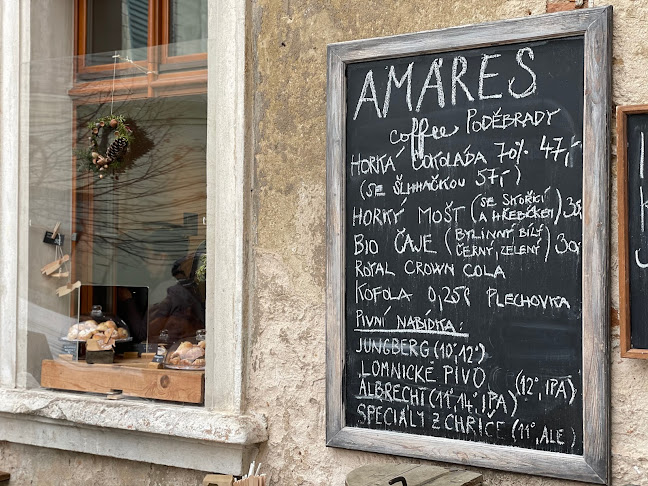 AMARES
coffee PODĚBRADY
HORKÁ ČOKOLÁDA 70% 47,-
(SE ŠLHHAČKOU 57,-)
HORKÝ MOŠT (SE SKOŘICÍ A HŘEBÍČKEM)
BIO ČAJE (BYLINNÝ, BÍLÝ ČERNÝ, ZELENÝ)
ROYAL CROWN COLA
KOFOLA 0,25l PLECHOVKA
PIVNÍ NABÍDKA:
JUNGBERG (10°, 12°)
LOMNICKÉ PIVO (12°, IPA)
ALBRECHT (11°, 14°, IPA)
SPECIÁLY Z CHŘICE (11°, ALE)